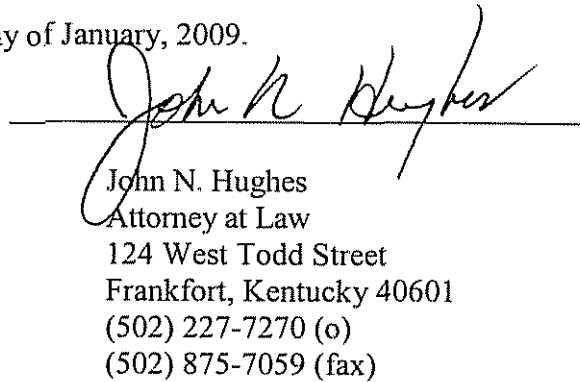 y of January, 2009.
John N Hughes
John N. Hughes
Attorney at Law
124 West Todd Street
Frankfort, Kentucky 40601
(502) 227-7270 (o)
(502) 875-7059 (fax)